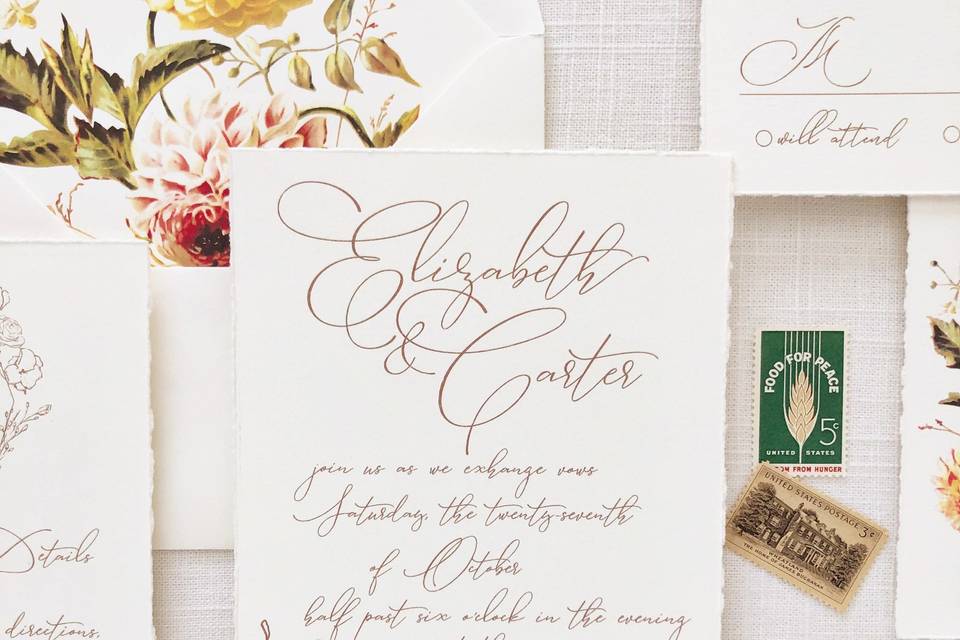 M
will attend
Elizabeth
& Carter
join us as we exchange vows
Saturday, the twenty-seventh
of October
half past six o'clock in the evening
Details
directions,
FOOD FOR PEACE
5c
UNITED STATES
FROM HUNGER
UNITED STATES POSTAGE
3c
WHEATLAND
THE HOME OF JAMES BUCHANAN